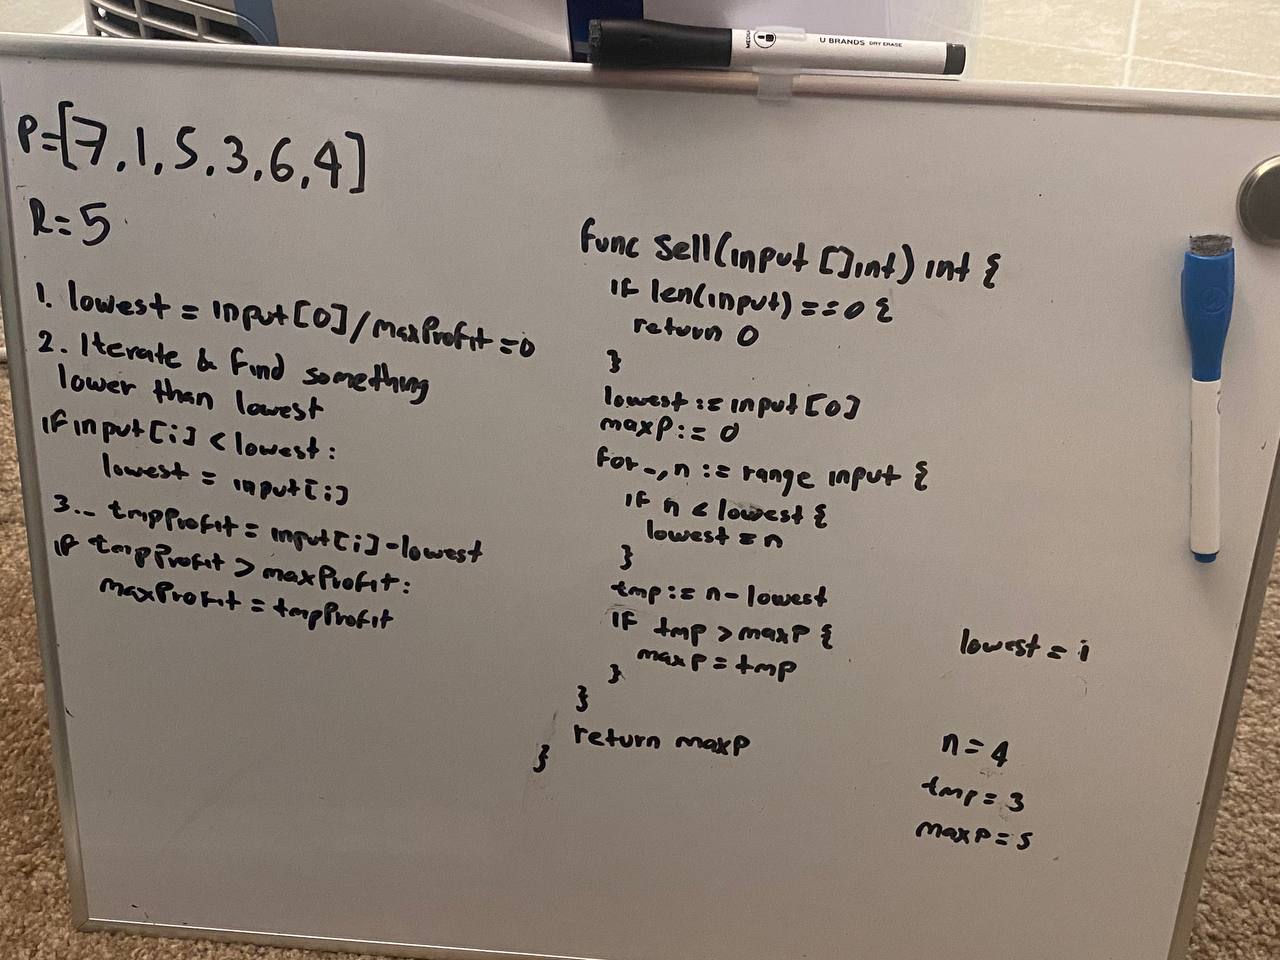 U BRANDS DRY ERASE
P=[7,1,5,3,6,4]
R=5
1. lowest = input[0]/maxProfit=0
2. Iterate & find something
lower than lowest
if input[i] < lowest:
lowest = input[i]
3.. tmpProfit = input[i]-lowest
if tmpProfit > maxProfit:
maxProfit = tmpProfit
func sell(input []int) int {
if len(input) == 0 {
return 0
}
lowest := input[0]
maxP := 0
for _, n := range input {
if n < lowest {
lowest = n
}
tmp := n - lowest
if tmp > maxP {
maxP = tmp
}
}
return maxP
}
lowest = 1
n = 4
tmp = 3
maxP = 5